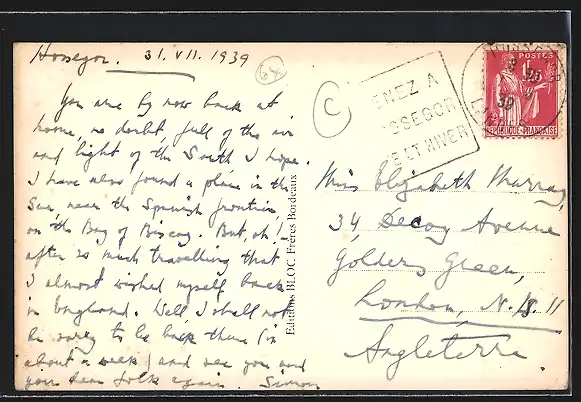 Hossegor. 31. VII. 1939
64
You are by now back at
home, no doubt, full of the air
and light of the South I hope.
I have also found a place in the
Sun, near the Spanish frontier,
on the Bay of Biscay. But, oh!
after so much travelling that
I almost wished myself back
in England. Well I shall not
be sorry to be back there (in
about a week) and see you and
your dear folk again. Simon
Editions BLOC Frères Bordeaux
C
VENEZ A
HOSSEGOR
ETE ET HIVER
POSTES
REPUBLIQUE FRANÇAISE
Miss Elizabeth Murray,
34, Decoy Avenue
Golders Green,
London, N.W. 11
Angleterre.